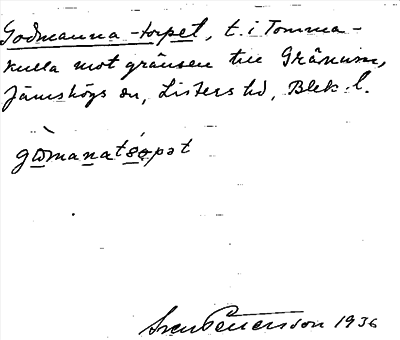 Godmanna-torpet, t. i Tomma-
kulla mot gränsen till Gränum,
Jämshögs sn, Listers hd, Blek. l.
gòmanatárpət
Sven Petersson 1936